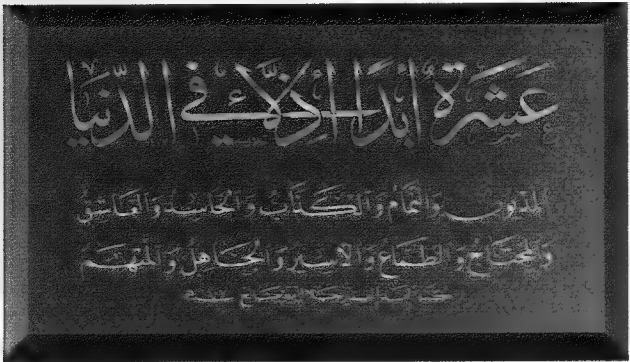 عَشَرَةٌ أَبَدًا أَذِلَّاءُ فِي الدُّنْيَا
المديون والنَّمَّامُ وَالْكَذَّابُ وَالْحَاسِدُ وَالْعَاشِقُ
وَالْمُحْتَاجُ وَالطَّمَّاعُ وَالْأَسِيرُ وَالْجَاهِلُ وَالْمُتَّهَمُ